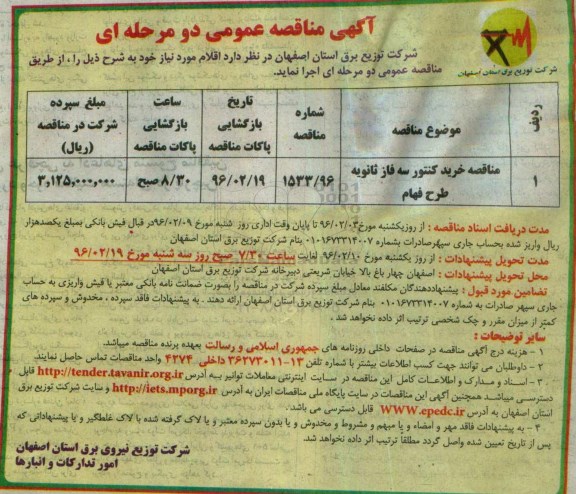 آگهی مناقصه عمومی دو مرحله ای
شرکت توزیع برق استان اصفهان
شرکت توزیع برق استان اصفهان در نظر دارد اقلام مورد نیاز خود به شرح ذیل را ، از طریق
مناقصه عمومی دو مرحله ای اجرا نماید.
ردیف
موضوع مناقصه
شماره مناقصه
تاریخ بازگشایی پاکات مناقصه
ساعت بازگشایی پاکات مناقصه
مبلغ سپرده شرکت در مناقصه (ریال)
۱
مناقصه خرید کنتور سه فاز ثانویه طرح فهام
۱۵۳۳/۹۶
۹۶/۰۲/۱۹
۸/۳۰ صبح
۳,۱۲۵,۰۰۰,۰۰۰
مدت دریافت اسناد مناقصه : از روز یکشنبه مورخ ۹۶/۰۲/۰۳ تا پایان وقت اداری روز شنبه مورخ ۹۶/۰۲/۰۹ در قبال فیش بانکی بمبلغ یکصدهزار
ریال واریز شده بحساب جاری سپهر صادرات بشماره ۰۱۰۱۶۷۳۳۱۴۰۰۷ بنام شرکت توزیع برق استان اصفهان
مدت تحویل پیشنهادات : از روز یکشنبه مورخ ۹۶/۰۲/۱۰ لغایت ساعت ۷/۳۰ صبح روز سه شنبه مورخ ۹۶/۰۲/۱۹
محل تحویل پیشنهادات : اصفهان چهار باغ بالا خیابان شریعتی دبیرخانه شرکت توزیع برق استان اصفهان
تضامین مورد قبول : پیشنهاددهندگان مکلفند معادل مبلغ سپرده شرکت در مناقصه را بصورت ضمانت نامه بانکی معتبر یا فیش واریزی به حساب
جاری سپهر صادرات به شماره ۰۱۰۱۶۷۳۳۱۴۰۰۷ بنام شرکت توزیع برق استان اصفهان ارائه دهند . به پیشنهادات فاقد سپرده ، مخدوش و سپرده های
کمتر از میزان مقرر و چک شخصی ترتیب اثر داده نخواهد شد .
سایر توضیحات :
۱ - هزینه درج آگهی مناقصه در صفحات داخلی روزنامه های جمهوری اسلامی و رسالت بعهده برنده مناقصه میباشد.
۲ - داوطلبان می توانند جهت کسب اطلاعات بیشتر با شماره تلفن ۱۳-۳۶۲۷۳۰۱۱ داخلی ۴۲۷۴ واحد مناقصات تماس حاصل نمایند.
۳ - اسناد و مدارک و اطلاعات کامل این مناقصه در سایت اینترنتی معاملات توانیر به آدرس http://tender.tavanir.org.ir قابل
دسترسی میباشد همچنین آگهی این مناقصات در سایت پایگاه ملی مناقصات ایران به آدرس http://iets.mporg.ir و سایت شرکت توزیع برق
استان اصفهان به آدرس www.epedc.ir قابل دسترسی می باشد.
۴ - به پیشنهادات فاقد مهر و امضاء و یا مبهم و مشروط و مخدوش و یا بدون سپرده معتبر و یا لاک گرفته شده با لاک غلطگیر و یا پیشنهاداتی که
پس از تاریخ تعیین شده واصل گردد مطلقاً ترتیب اثر داده نخواهد شد.
شرکت توزیع نیروی برق استان اصفهان
امور تدارکات و انبارها